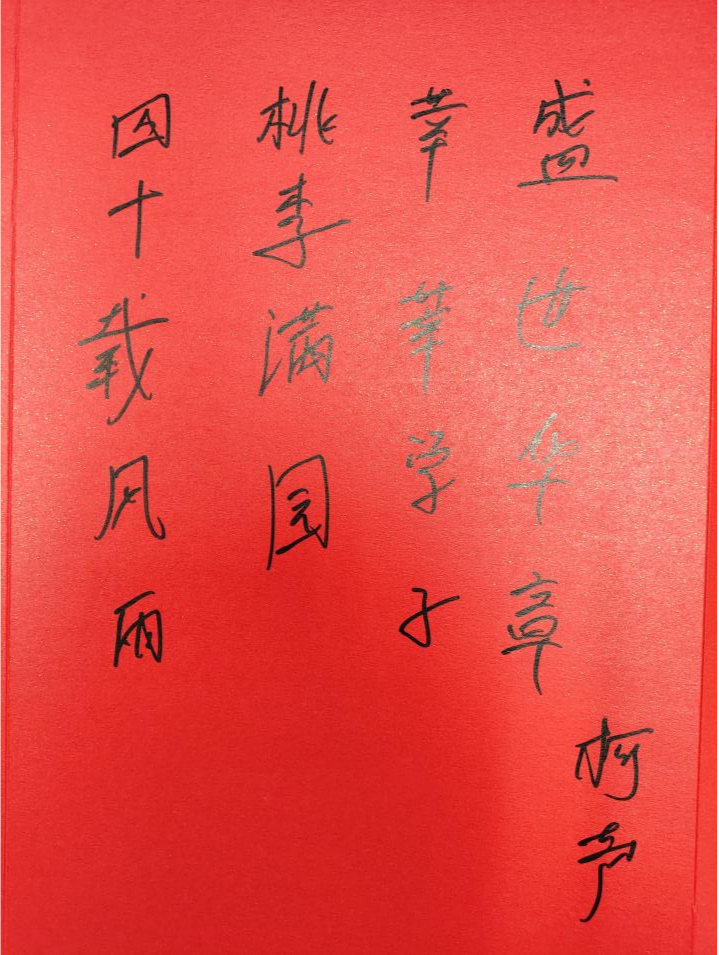 四十载风雨
桃李满园
莘莘学子
盛世华章
柯声